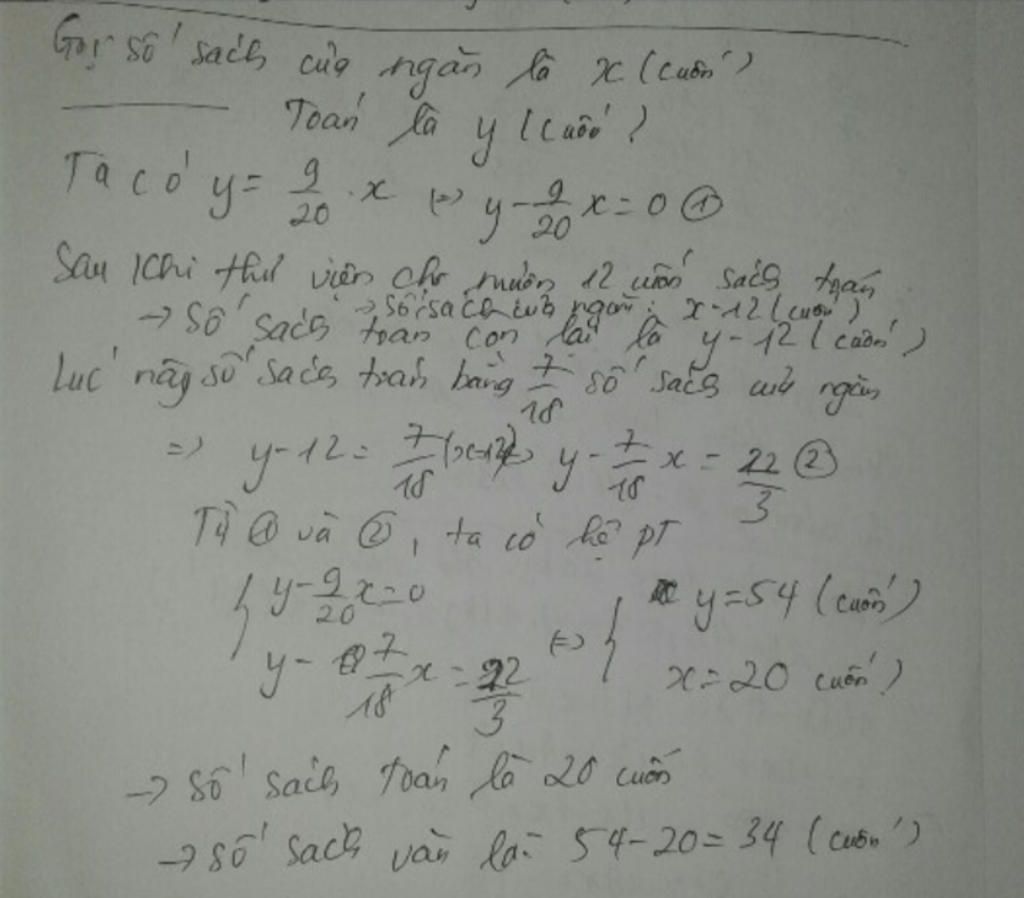 Gọi số sách của ngăn là x (cuốn)
Toán là y (cuốn)
Ta có y = 9/20 . x <=> y - 9/20 x = 0 ①
Sau khi thư viện cho mượn 12 cuốn sách toán
→ số sách của ngăn : x - 12 (cuốn)
→ số sách toán còn lại là y - 12 (cuốn)
Lúc này số sách toán bằng 7/18 số sách của ngăn
=> y - 12 = 7/18 (x - 12) <=> y - 7/18 x = 22/3 ②
Từ ① và ②, ta có hệ pt
{ y - 9/20 x = 0
y - 7/18 x = 22/3 <=> { y = 54 (cuốn)
x = 20 cuốn)
→ số sách toán là 20 cuốn
→ số sách văn là: 54 - 20 = 34 (cuốn)